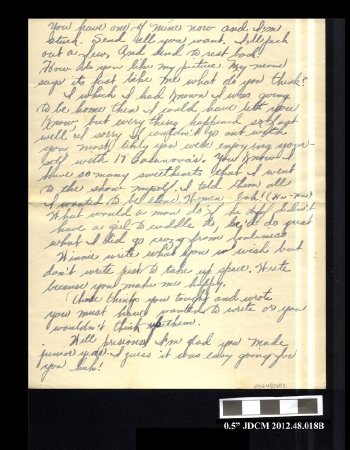 You have one of mine now and I'm
stuck. Send all you want. I'll pick
out a few. And send the rest back!
How do you like my picture My mom
says its just like me what do you think?
I wish I had known I was going
to be home then I could have let you
know but everything happened so fast
well I sorry I couldn't go out with
you most likely you were enjoying your-
self with 17 Casanova's. You know I
have so many sweethearts that I went
to the show myself. I told them all
I wanted to be alone. Women bah! (Ha-Ha)
What would a man do if he didn't
have a girl to cuddle to, he'd do just
what I did go crazy from loneliness
Winnie write what you wish but
don't write just to take up space. Write
because you make me happy.
those things you thought and wrote
you must have wanted to write or you
wouldn't think up them.
Well I'm glad you made
junior year. I guess it was easy going for
you huh!
2012.48.018B
0.5" JDCM 2012.48.018B